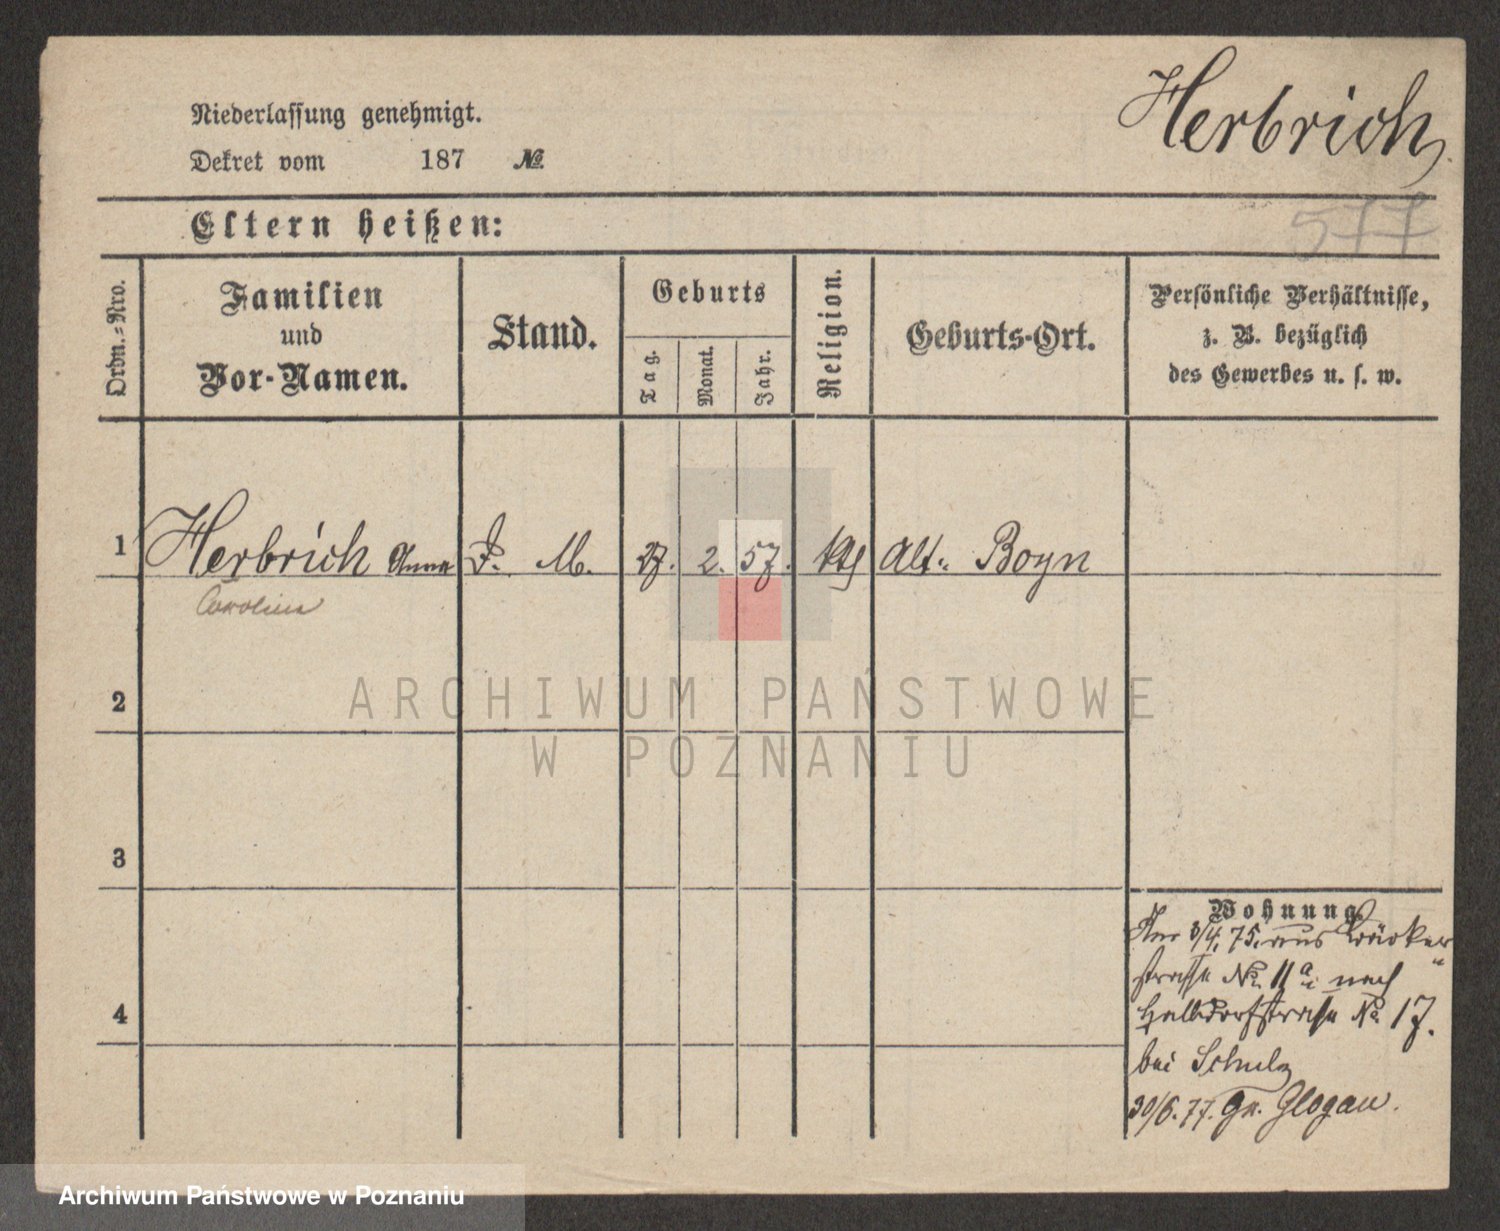 Herbrich
Niederlassung genehmigt.
Dekret vom 187 No.
577
Eltern heißen:
Ordn.-Nro.
Familien
und
Vor-Namen.
Stand.
Geburts
Tag.
Monat.
Jahr.
Religion.
Geburts-Ort.
Persönliche Verhältnisse,
z. B. bezüglich
des Gewerbes u. s. w.
1 Herbrich Anna D. M. 27. 2. 57. kth Alt- Boyn
Carolina
2
ARCHIWUM PAŃSTWOWE
W POZNANIU
3
Wohnung.
3/4. 75. aus Bäcker
strasse No. 11a nach
4
Halbdorfstrasse No 17.
bei Schulz
30/6. 77. Gr. Glogau.
Archiwum Państwowe w Poznaniu